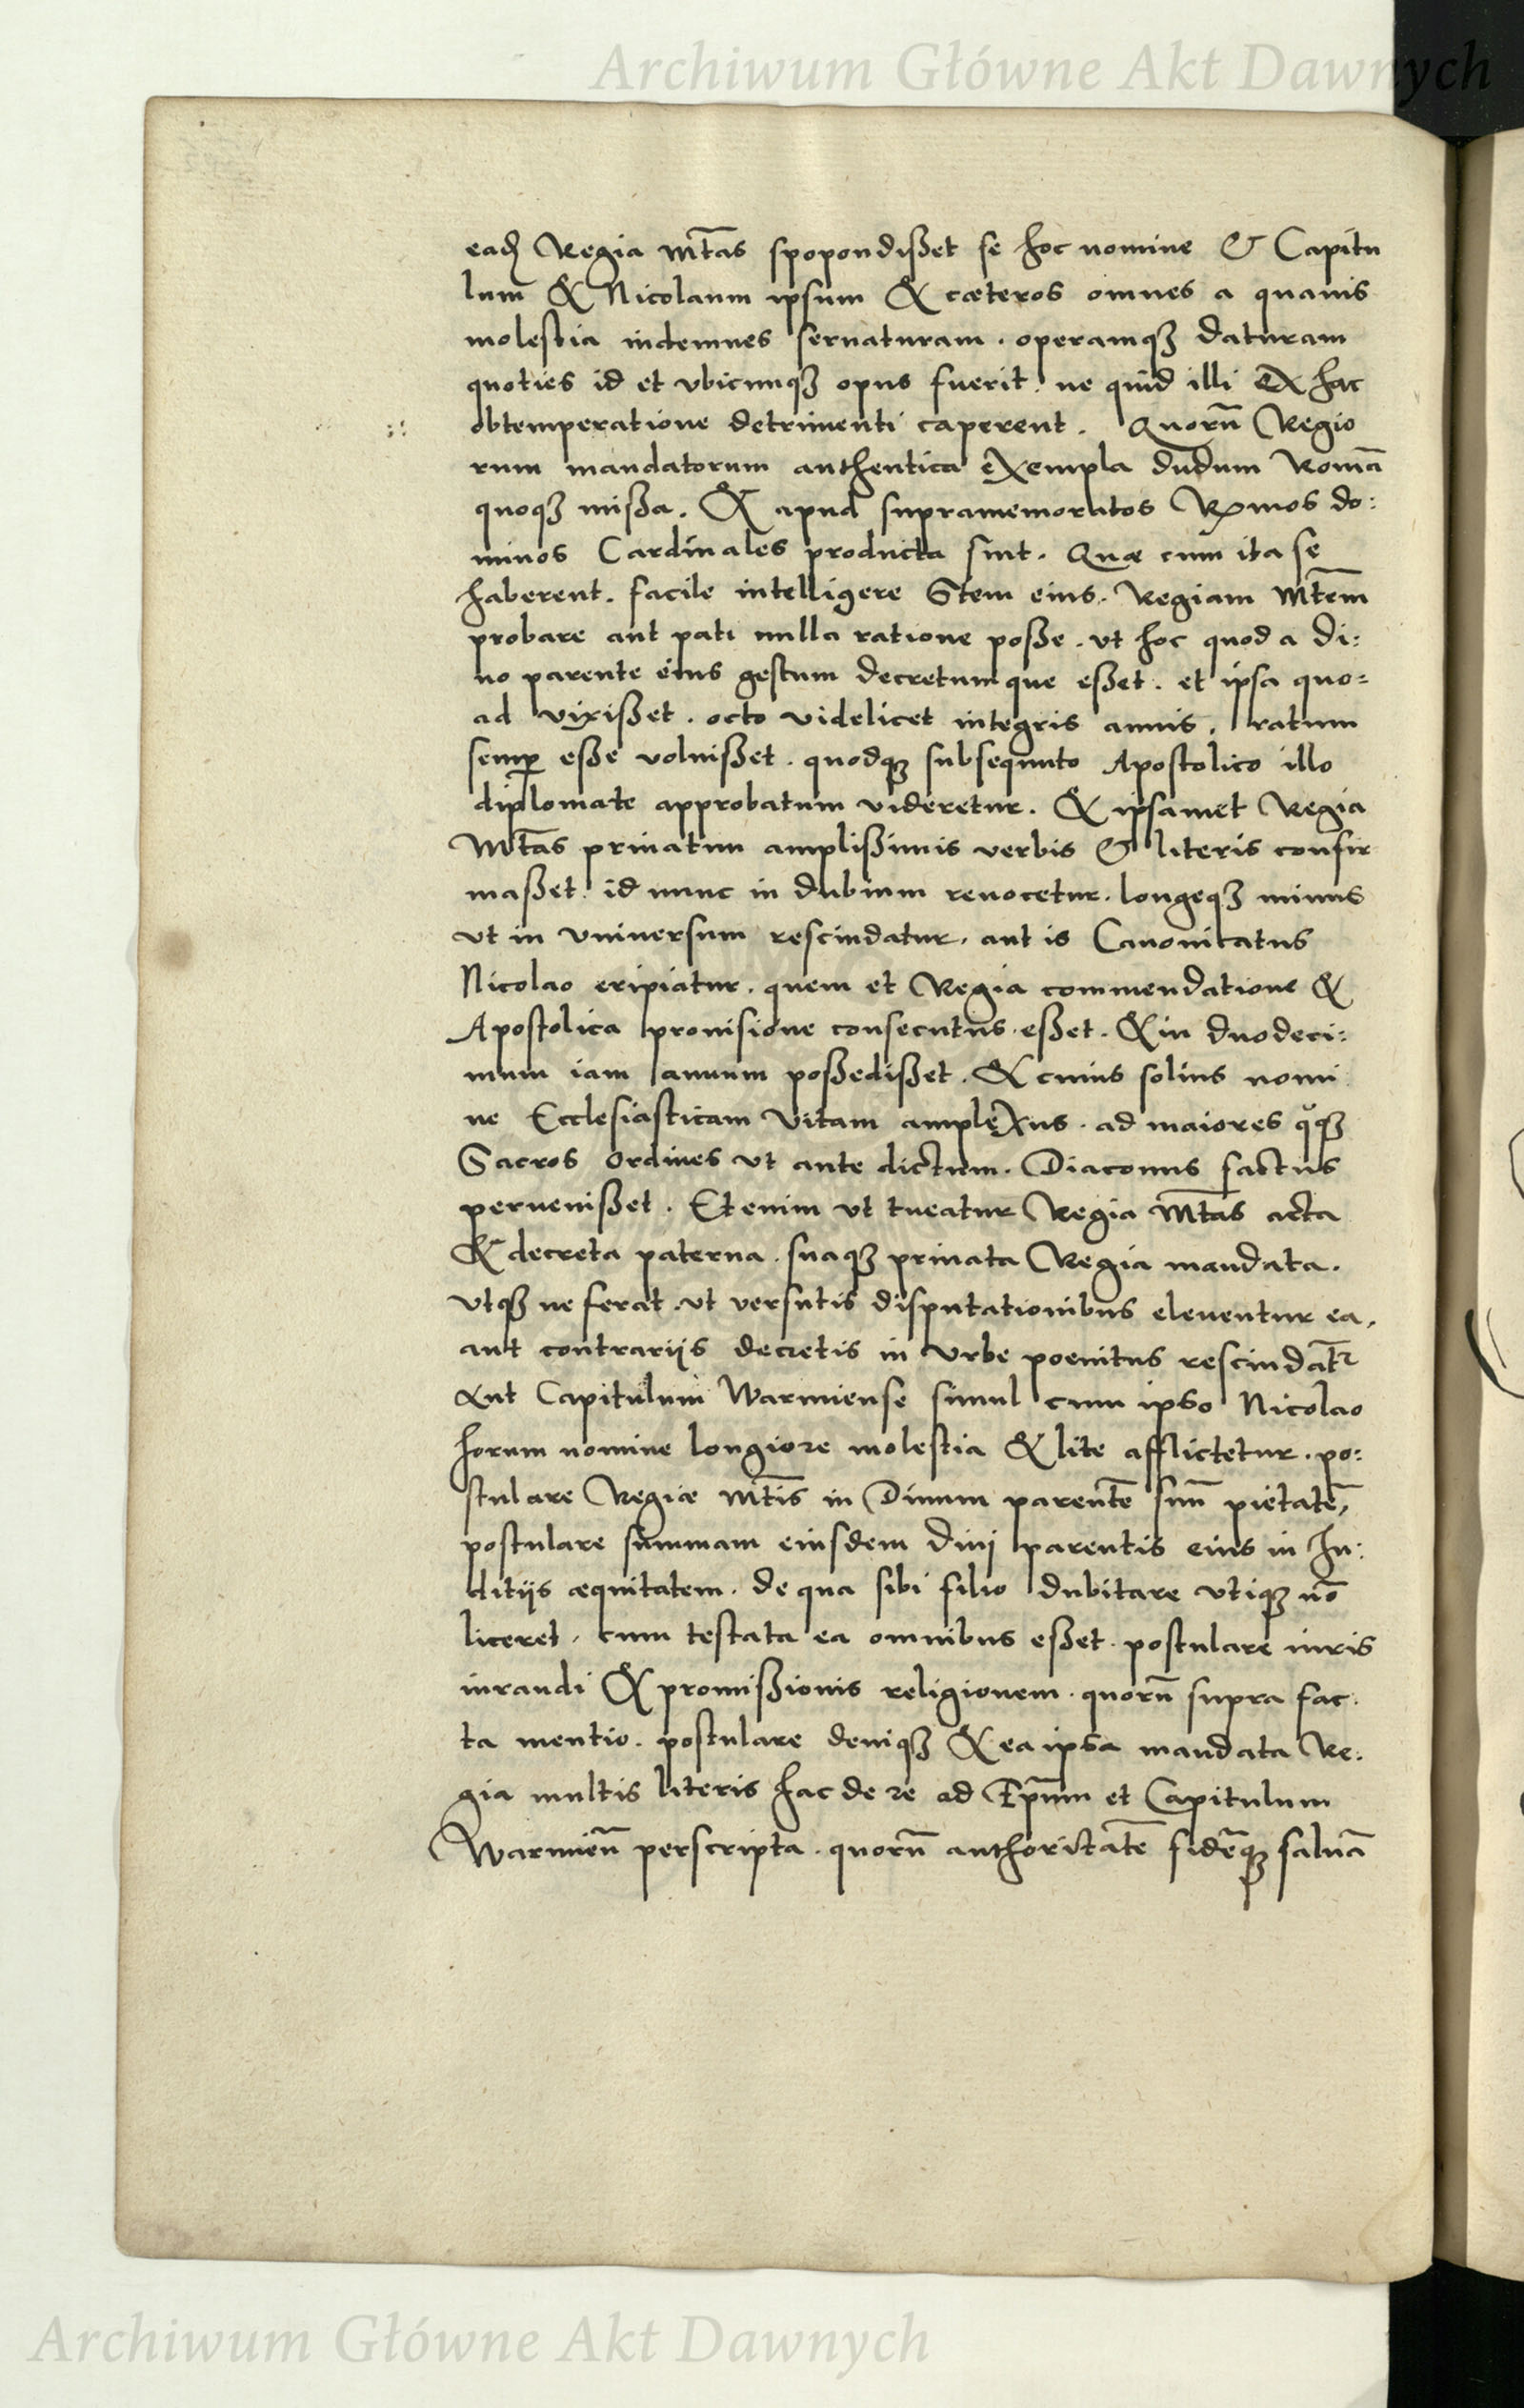 Archiwum Główne Akt Dawnych
ead Regia Mtas spopondißet se hoc nomine & Capitu
lum & Nicolaum ipsum & cæteros omnes a quauis
molestia indemnes seruaturam. operamqʒ daturam
quoties id et vbicunqʒ opus fuerit. ne quid illi ex hac
obtemperatione detrimenti caperent. Quorū Regio
rum mandatorum authentica exempla dudum Romā
quoqʒ mißa. & apud supramemoratos Rmos do:
minos Cardinales producta sint. Quæ cum ita se
haberent. facile intelligere Stem eius. Regiam Mtem
probare aut pati nulla ratione poße. vt hoc quod a Di:
uo parente eius gestum decretumque eßet. et ipsa quo=
ad vixißet. octo videlicet integris annis. ratum
semp eße voluißet. quodqʒ subsequuto Apostolico illo
diplomate approbatum videretur. & ipsamet Regia
Mtas priuatim amplißimis verbis & literis confir
maßet. id nunc in dubium reuocetur. longeqʒ minus
vt in vniuersum rescindatur. aut is Canonicatus
Nicolao eripiatur. quem et Regia commendatione &
Apostolica prouisione consecutus eßet. & in duodeci:
mum iam annum poßedißet. & cuius solius nomi
ne Ecclesiasticam vitam amplexus. ad maiores qʒ
Sacros Ordines vt ante dictum. Diaconus factus
peruenißet. Etenim vt tueatur Regia Mtas acta
& decreta paterna. suaqʒ priuata Regia mandata.
vtqʒ ne ferat. vt versutis disputationibus eleuentur ea,
aut contrariis decretis in Vrbe poenitus rescindātr
Aut Capitulum Warmiense simul cum ipso Nicolao
horum nomine longiore molestia & lite afflictetur. po:
stulare Regiæ Mtis in Diuum parentē suū pietatē,
postulare summam eiusdem Diui parentis eius in Iu:
ditiis æquitatem. de qua sibi filio dubitare vtiqʒ nō
liceret. cum testata ea omnibus eßet. postulare iuris
iurandi & promißionis religionem. quorū supra fac.
ta mentio. postulare deniqʒ & ea ipsa mandata Re:
gia multis literis hac de re ad Epm̄ et Capitulum
Warmien̄ perscripta. quorū authoritatē fidēqʒ saluā
Archiwum Główne Akt Dawnych